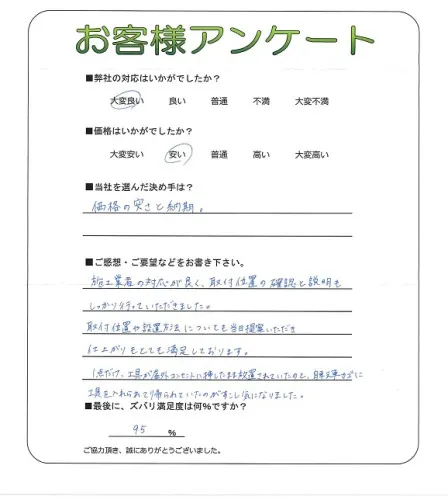 お客様アンケート
■弊社の対応はいかがでしたか?
大変良い 良い 普通 不満 大変不満
■価格はいかがでしたか?
大変安い 安い 普通 高い 大変高い
■当社を選んだ決め手は?
価格の安さと納期。
■ご感想・ご要望などをお書き下さい。
施工業者の対応が良く、取付位置の確認と説明も
しっかり行っていただきました。
取付位置や設置方法についても当日提案いただき
仕上がりもとても満足しております。
1点だけ、工具が屋外コンセントに挿したまま放置されていたのと、
工具を入れられて帰られていたのがすこし気になりました。
■最後に、ズバリ満足度は何%ですか?
95 %
ご協力頂き、誠にありがとうございました。